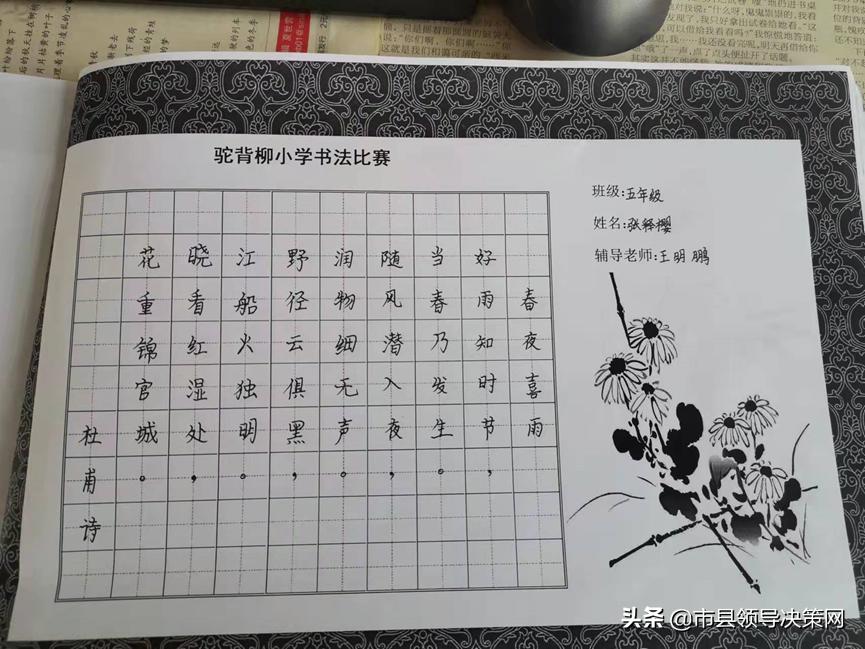 驼背柳小学书法比赛
班级:五年级
姓名:张释樱
辅导老师:王明鹏
春夜喜雨
好雨知时节,
当春乃发生。
随风潜入夜,
润物细无声。
野径云俱黑,
江船火独明。
晓看红湿处,
花重锦官城。
杜甫诗
头条 @市县领导决策网